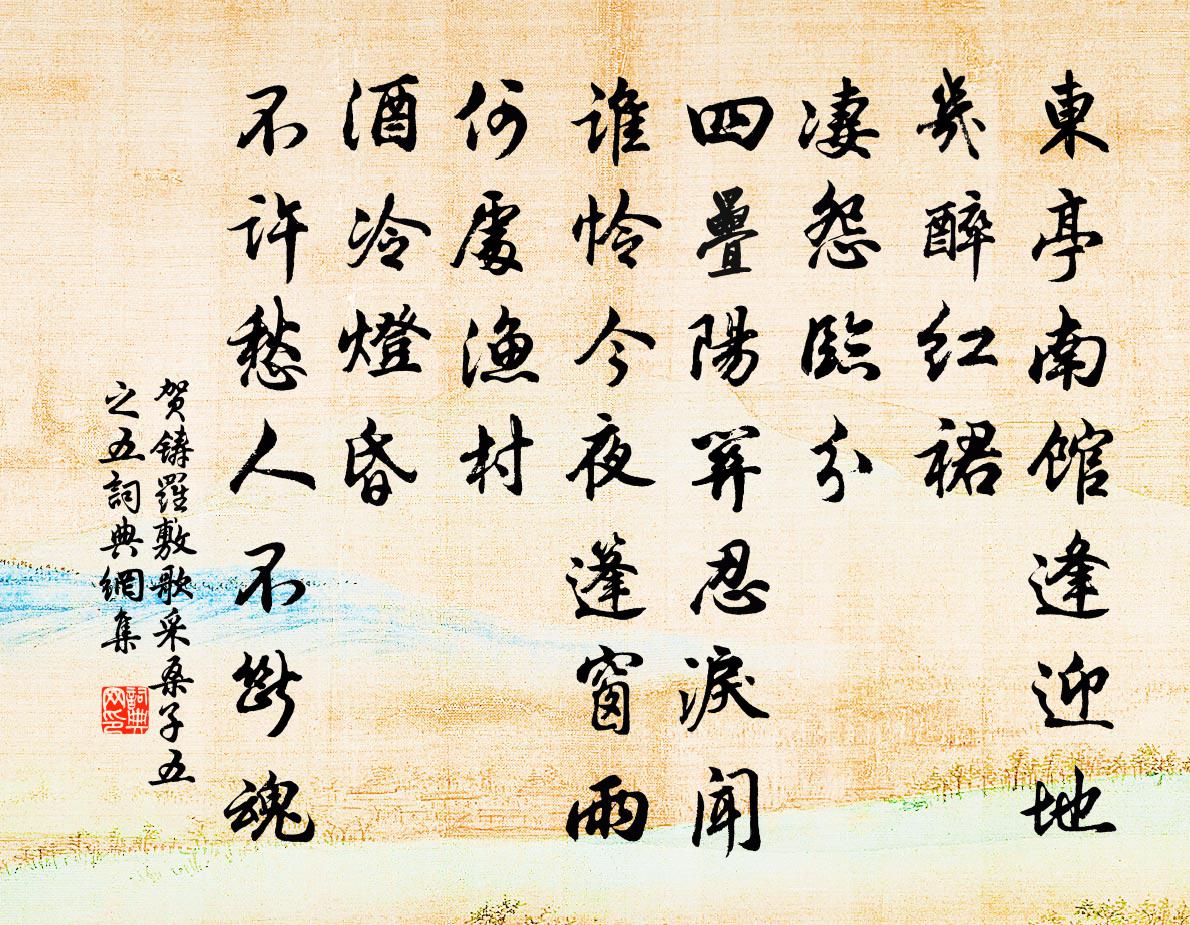 東亭南館逢迎地
幾醉紅裙
凄怨臨分
四疊陽關忍淚聞
誰怜今夜蓬窗雨
何處漁村
酒冷燈昏
不許愁人不斷魂
贺鑄羅敷歌采桑子五
之五詞典網集
詞典网印